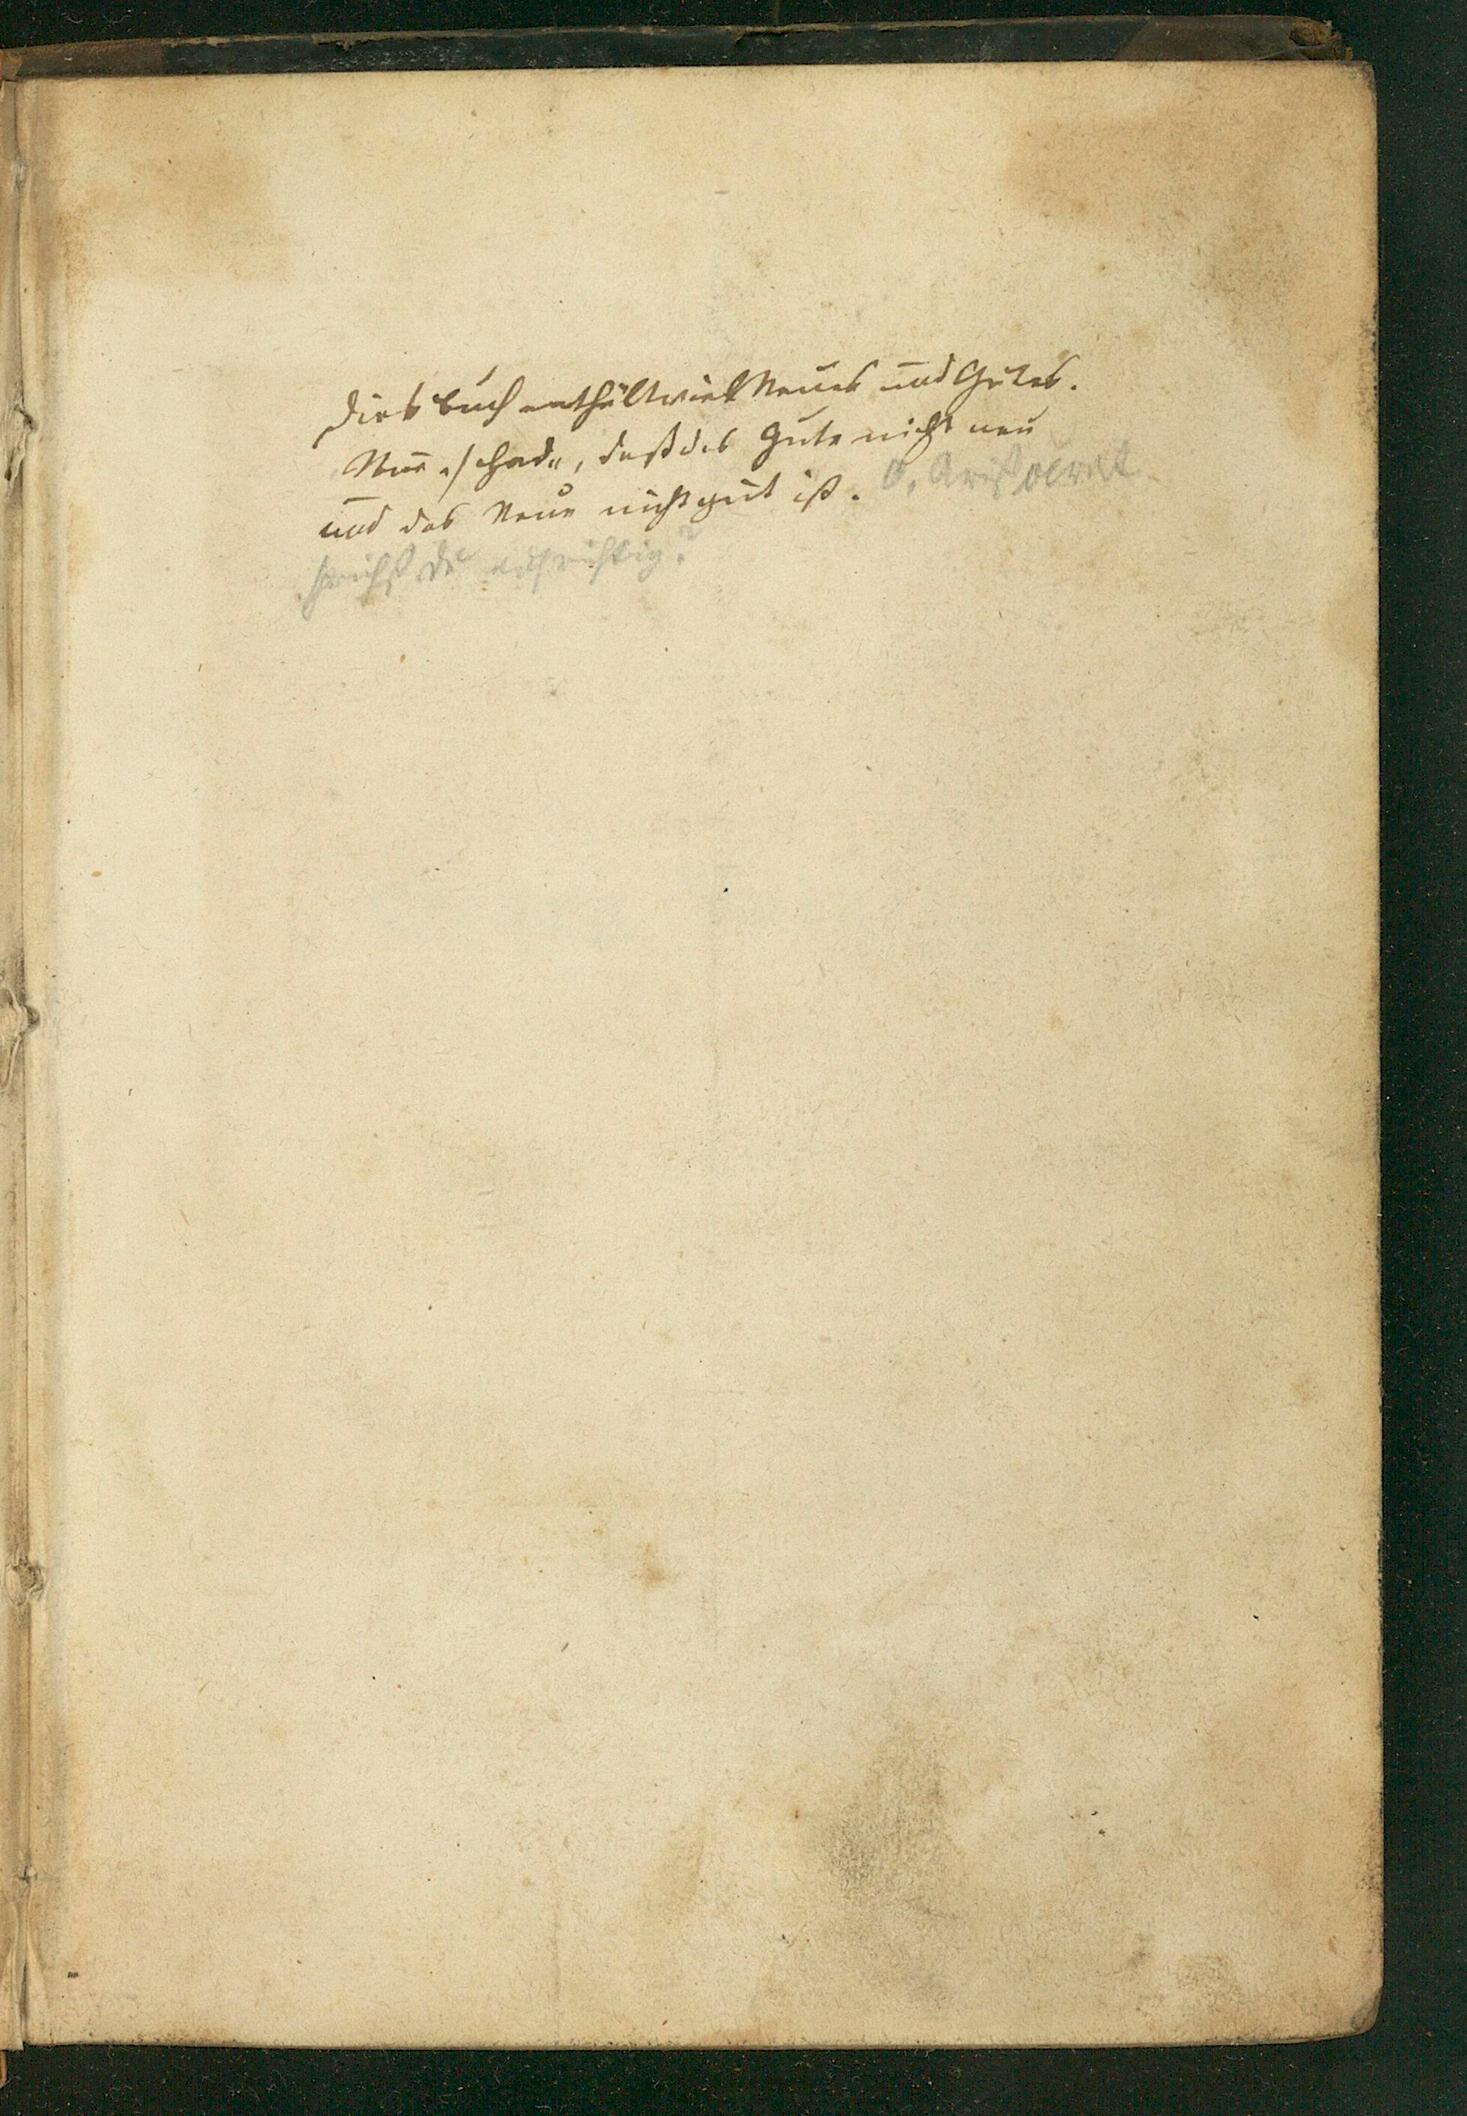 Dies Buch enthält viel Neues und Gutes.
Nur schade, daß das Gute nicht neu
und das Neue nicht gut ist. O, Aristocrat
sprichst du aufrichtig?